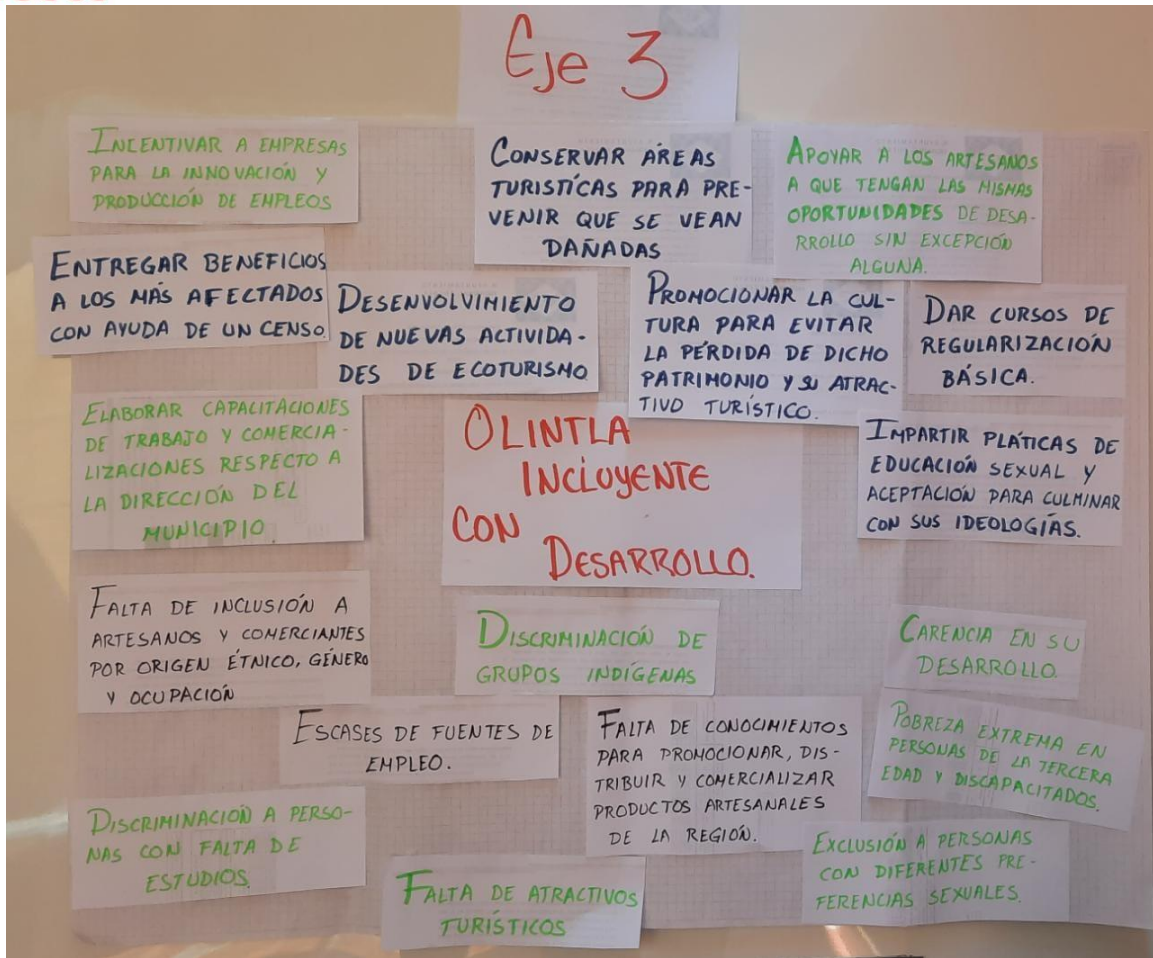 Eje 3
INCENTIVAR A EMPRESAS
PARA LA INNOVACIÓN Y
PRODUCCIÓN DE EMPLEOS
CONSERVAR ÁREAS
TURISTÍCAS PARA PRE-
VENIR QUE SE VEAN
DAÑADAS
APOYAR A LOS ARTESANOS
A QUE TENGAN LAS MISMAS
OPORTUNIDADES DE DESA-
RROLLO SIN EXCEPCIÓN
ALGUNA.
ENTREGAR BENEFICIOS
A LOS MÁS AFECTADOS
CON AYUDA DE UN CENSO.
DESENVOLVIMIENTO
DE NUEVAS ACTIVIDA-
DES DE ECOTURISMO
PROMOCIONAR LA CUL-
TURA PARA EVITAR
LA PÉRDIDA DE DICHO
PATRIMONIO Y SU ATRAC-
TIVO TURÍSTICO.
DAR CURSOS DE
REGULARIZACIÓN
BÁSICA.
ELABORAR CAPACITACIONES
DE TRABAJO Y COMERCIA-
LIZACIONES RESPECTO A
LA DIRECCIÓN DEL
MUNICIPIO.
OLINTLA
INCLUYENTE
CON
DESARROLLO.
IMPARTIR PLÁTICAS DE
EDUCACIÓN SEXUAL Y
ACEPTACIÓN PARA CULMINAR
CON SUS IDEOLOGÍAS.
FALTA DE INCLUSIÓN A
ARTESANOS Y COMERCIANTES
POR ORIGEN ÉTNICO, GÉNERO
Y OCUPACIÓN
DISCRIMINACIÓN DE
GRUPOS INDÍGENAS
CARENCIA EN SU
DESARROLLO.
ESCASES DE FUENTES DE
EMPLEO.
FALTA DE CONOCIMIENTOS
PARA PROMOCIONAR, DIS-
TRIBUIR Y COMERCIALIZAR
PRODUCTOS ARTESANALES
DE LA REGIÓN.
POBREZA EXTREMA EN
PERSONAS DE LA TERCERA
EDAD Y DISCAPACITADOS.
DISCRIMINACIÓN A PERSO-
NAS CON FALTA DE
ESTUDIOS.
FALTA DE ATRACTIVOS
TURÍSTICOS
EXCLUSIÓN A PERSONAS
CON DIFERENTES PRE-
FERENCIAS SEXUALES.